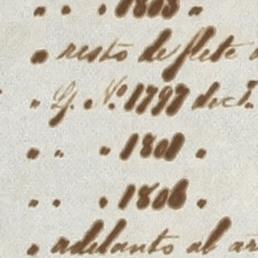 " " . 1803 "
" resto de flete
" L. " Nº 1797 dect.
" " " 1801 .
" " . 1806 .
" adelanto al